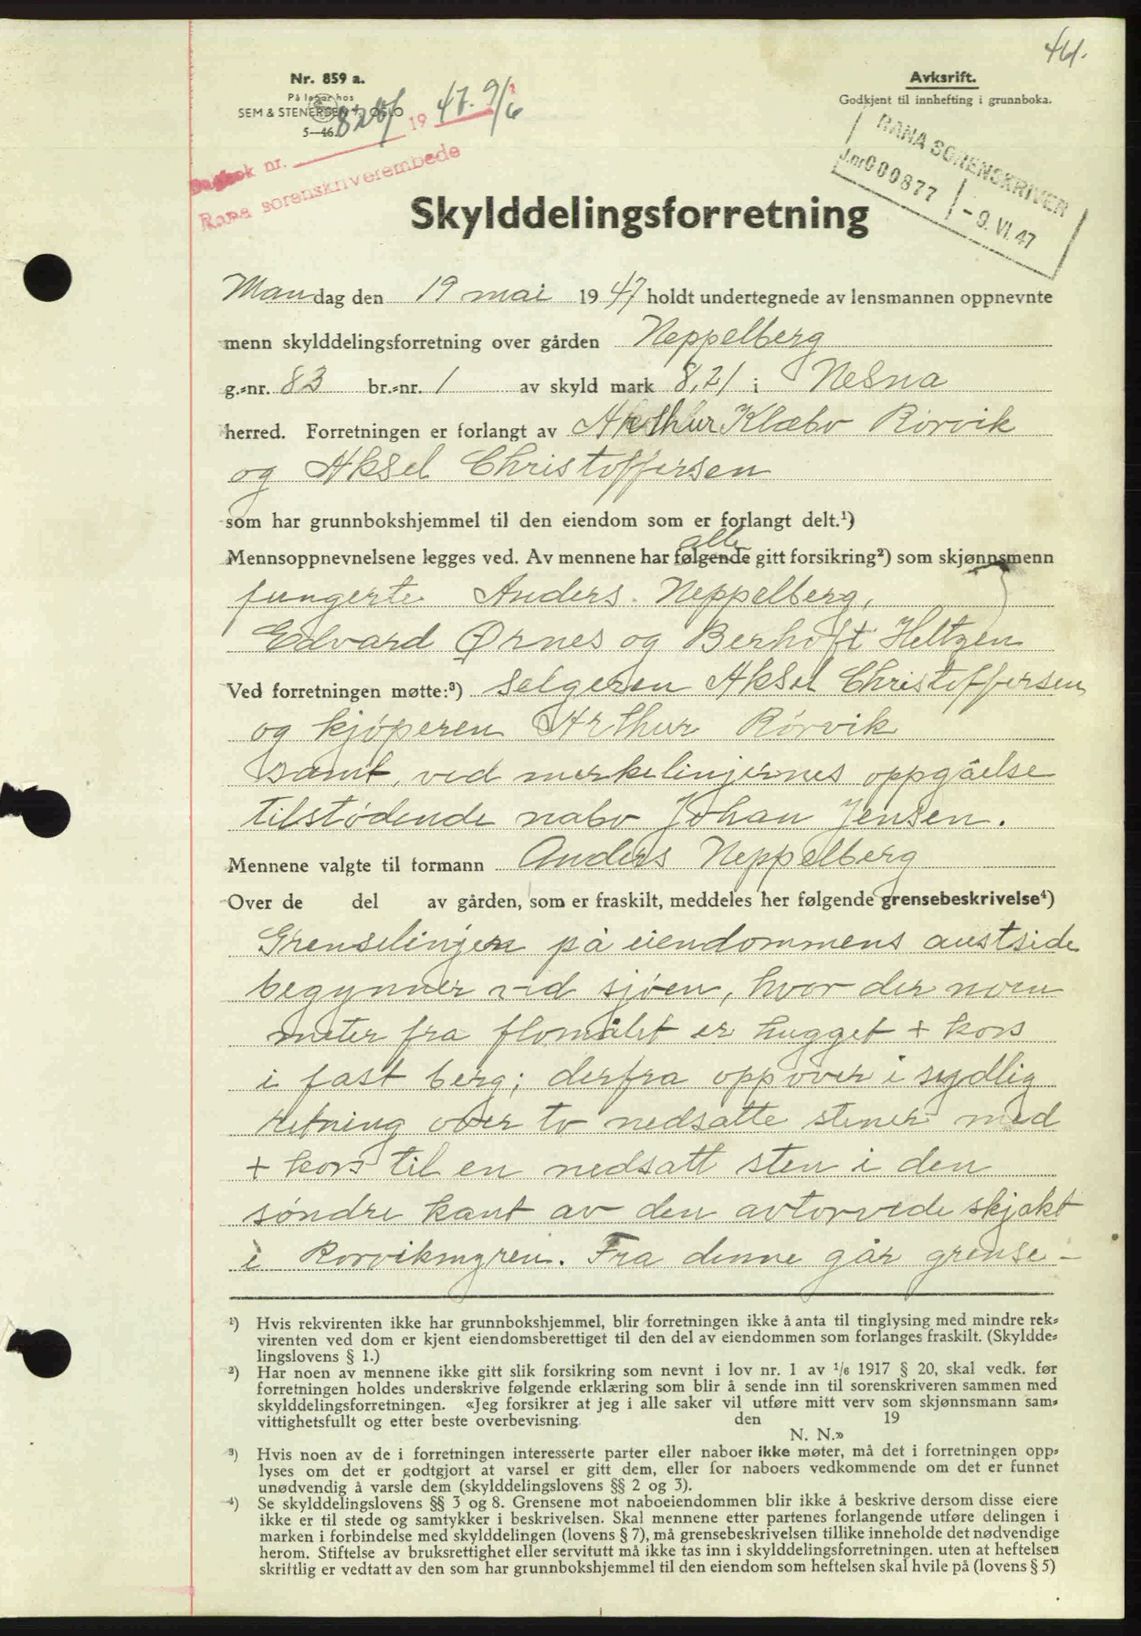 461.
Nr. 859 a.
På lager hos
SEM & STENERSEN A/S, OSLO
5—46.
Avskrift.
Godkjent til innhefting i grunnboka.
Dagbok nr. 19 47. 9/6
Rana sorenskriverembede
RANA SORENSKRIVER
J.nr 000877 - 9. VI. 47
Skylddelingsforretning
Mandag den 19 mai 1947 holdt undertegnede av lensmannen oppnevnte
menn skylddelingsforretning over gården Neppelberg
g.-nr. 83 br.-nr. 1 av skyld mark 8,21 i Nesna
herred. Forretningen er forlangt av Arthur Klæbo Rørvik
og Aksel Christoffersen
som har grunnbokshjemmel til den eiendom som er forlangt delt.¹)
Mennsoppnevnelsene legges ved. Av mennene har følgende alle gitt forsikring²) som skjønnsmenn
fungerte Anders Neppelberg,
Edvard Ørnes og Berhoft Heltzen
Ved forretningen møtte:³) selgeren Aksel Christoffersen
og kjøperen Arthur Rørvik
samt, ved merkelinjernes oppgåelse
tilstødende nabo Johan Jensen.
Mennene valgte til formann Anders Neppelberg
Over de del av gården, som er fraskilt, meddeles her følgende grensebeskrivelse⁴)
Grenselinjen på eiendommens austside
begynner ved sjøen, hvor der noen
meter fra flomålet er hugget + kors
i fast berg; derfra oppover i sydlig
retning over to nedsatte stener med
+ kors til en nedsatt sten i den
søndre kant av den avtorvede skjakt
i Rørvikmyren. Fra denne går grense-
¹) Hvis rekvirenten ikke har grunnbokshjemmel, blir forretningen ikke å anta til tinglysing med mindre rek-
virenten ved dom er kjent eiendomsberettiget til den del av eiendommen som forlanges fraskilt. (Skyldde-
lingslovens § 1.)
²) Har noen av mennene ikke gitt slik forsikring som nevnt i lov nr. 1 av 1/6 1917 § 20, skal vedk. før
forretningen holdes underskrive følgende erklæring som blir å sende inn til sorenskriveren sammen med
skylddelingsforretningen. «Jeg forsikrer at jeg i alle saker vil utføre mitt verv som skjønnsmann sam-
vittighetsfullt og etter beste overbevisning den 19
N. N.»
³) Hvis noen av de i forretningen interesserte parter eller naboer ikke møter, må det i forretningen opp-
lyses om det er godtgjort at varsel er gitt dem, eller for naboers vedkommende om det er funnet
unødvendig å varsle dem (skylddelingslovens §§ 2 og 3).
⁴) Se skylddelingslovens §§ 3 og 8. Grensene mot naboeiendommen blir ikke å beskrive dersom disse eiere
ikke er til stede og samtykker i beskrivelsen. Skal mennene etter partenes forlangende utføre delingen i
marken i forbindelse med skylddelingen (lovens § 7), må grensebeskrivelsen tillike inneholde det nødvendige
herom. Stiftelse av bruksrettighet eller servitutt må ikke tas inn i skylddelingsforretningen. uten at heftelsen
skriftlig er vedtatt av den som har grunnbokshjemmel til den eiendom som heftelsen skal hvile på (lovens § 5)